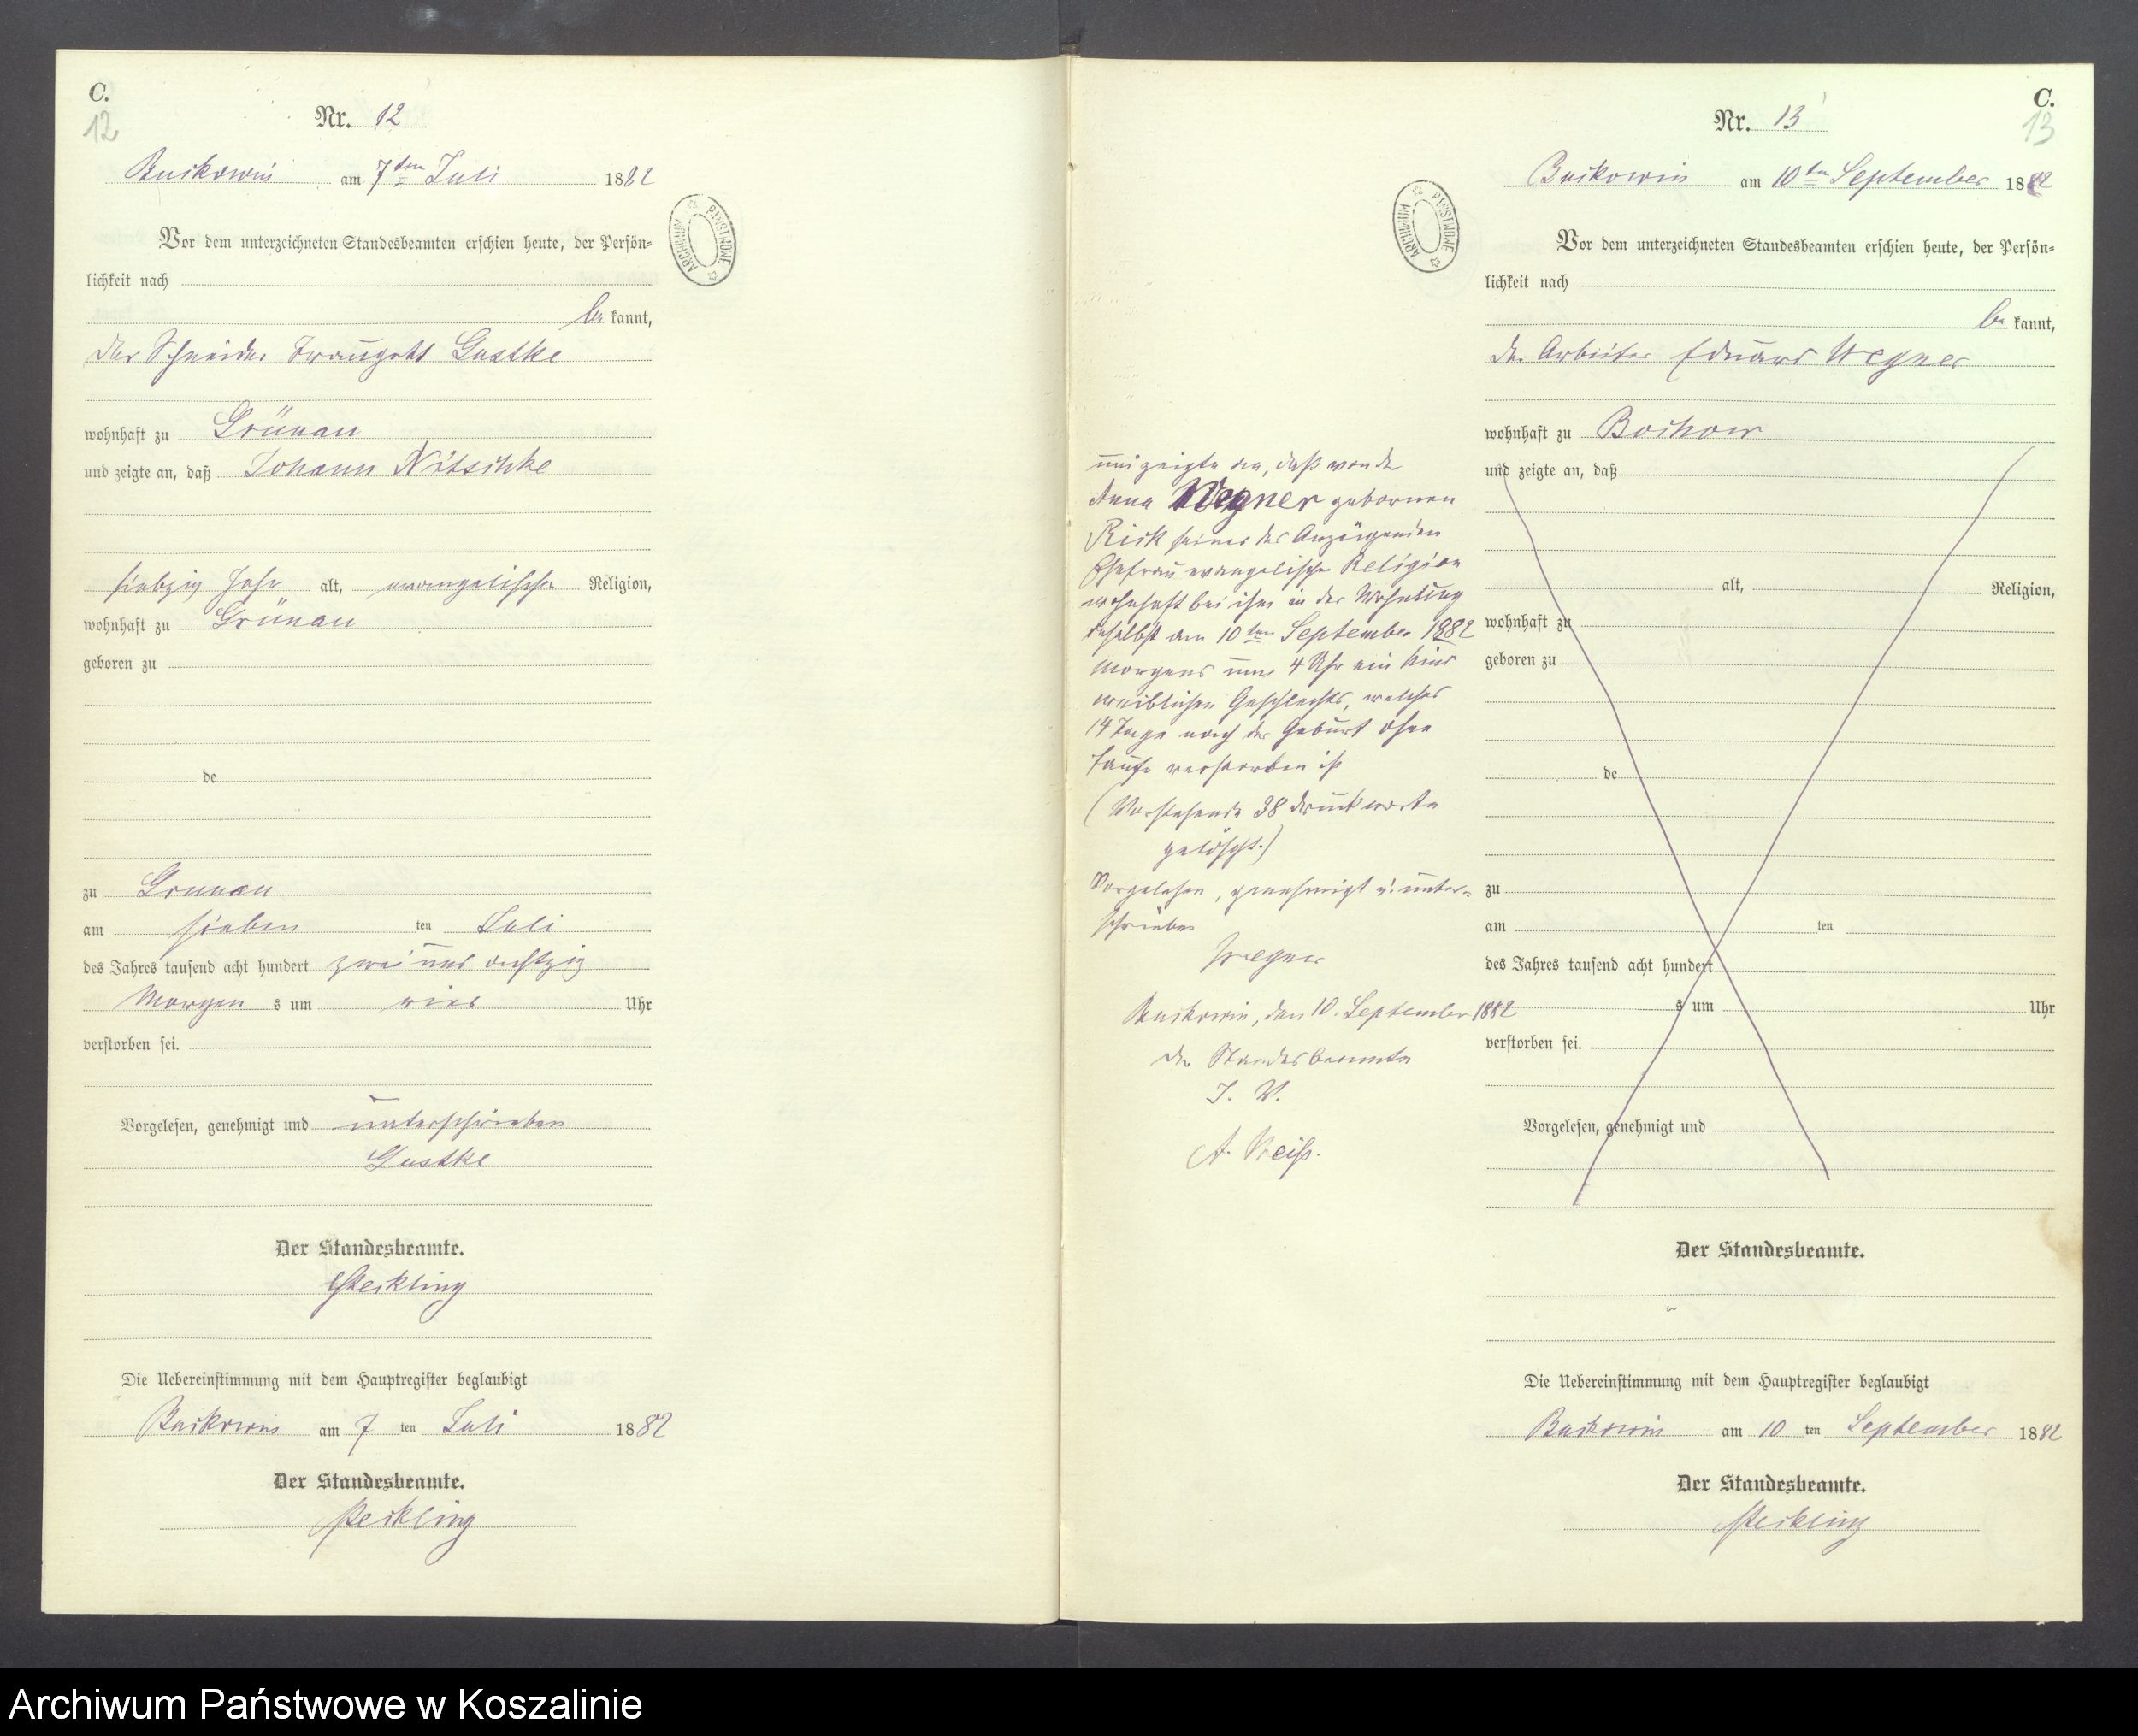 C.
12
Nr. 12
Buckowin am 7ten Juli 1882
Vor dem unterzeichneten Standesbeamten erschien heute, der Persön-
lichkeit nach
be kannt,
der Schneider Traugott Gustke
wohnhaft zu Grünau
und zeigte an, daß Johann Nitschke
siebzig Jahr alt, evangelischer Religion,
wohnhaft zu Grünau
geboren zu
de
zu Grunau
am sieben ten Juli
des Jahres tausend acht hundert zwei und achtzig
Morgen s um vier Uhr
verstorben sei.
Vorgelesen, genehmigt und unterschrieben
Gustke
Der Standesbeamte.
Die Uebereinstimmung mit dem Hauptregister beglaubigt
Buckowin am 7 ten Juli 1882
Der Standesbeamte.
ARCHIWUM PAŃSTWOWE
ARCHIWUM PAŃSTWOWE
C.
13
Nr. 13
Buckowin am 10ten September 1882
Vor dem unterzeichneten Standesbeamten erschien heute, der Persön-
lichkeit nach
be kannt,
der Arbeiter Eduard Wegner
wohnhaft zu Bochow
und zeigte an, daß
alt, Religion,
wohnhaft zu
geboren zu
de
zu
am ten
des Jahres tausend acht hundert
s um Uhr
verstorben sei.
Vorgelesen, genehmigt und
und zeigte an, daß von der
Anna Wegner gebornen
Rick seiner des Anzeigenden
Ehefrau evangelischer Religion
wohnhaft bei ihm in der Wohnung
daselbst am 10ten September 1882
Morgens um 4 Uhr ein Kind
weiblichen Geschlechts, welches
14 Tage nach der Geburt ohne
Taufe verstorben ist
(Vorstehende 38 Druckworte
gelöscht.)
Vorgelesen, genehmigt u. unter-
schrieben
Wegner
Buckowin, den 10. September 1882
Der Standesbeamte
I. V.
Der Standesbeamte.
Die Uebereinstimmung mit dem Hauptregister beglaubigt
Buckowin am 10 ten September 1882
Der Standesbeamte.
Archiwum Państwowe w Koszalinie